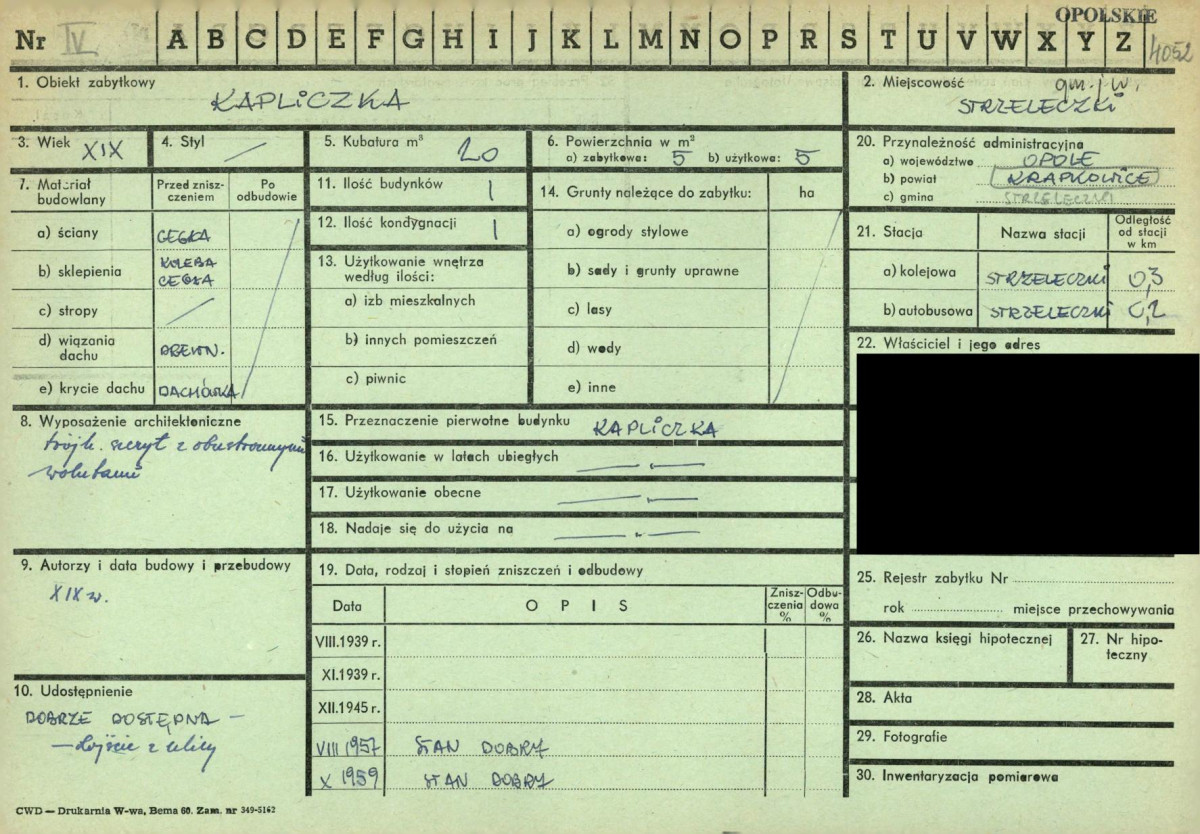 OPOLSKIE
Nr IV A B C D E F G H I J K L M N O P R S T U V W X Y Z 4052
1. Obiekt zabytkowy
KAPLICZKA
2. Miejscowość gm. j.w.
STRZELECZKI
3. Wiek XIX
4. Styl —
5. Kubatura m³ 20
6. Powierzchnia w m²
a) zabytkowa: 5 b) użytkowa: 5
20. Przynależność administracyjna
a) województwo OPOLE
b) powiat KRAPKOWICE
c) gmina STRZELECZKI
7. Materiał budowlany
Przed zniszczeniem
Po odbudowie
a) ściany CEGŁA
b) sklepienia KOLEBA CEGŁA
c) stropy —
d) wiązania dachu DREWN.
e) krycie dachu DACHÓWKA
11. Ilość budynków 1
12. Ilość kondygnacji 1
13. Użytkowanie wnętrza według ilości:
a) izb mieszkalnych
b) innych pomieszczeń
c) piwnic
14. Grunty należące do zabytku: ha
a) ogrody stylowe
b) sady i grunty uprawne
c) lasy
d) wody
e) inne
21. Stacja
Nazwa stacji
Odległość od stacji w km
a) kolejowa STRZELECZKI 0,3
b) autobusowa STRZELECZKI 0,2
22. Właściciel i jego adres
8. Wyposażenie architektoniczne
trójk. szczyt z obustronnymi
wolutami
15. Przeznaczenie pierwotne budynku KAPLICZKA
16. Użytkowanie w latach ubiegłych — „ —
17. Użytkowanie obecne — „ —
18. Nadaje się do użycia na — „ —
9. Autorzy i data budowy i przebudowy
XIX w.
19. Data, rodzaj i stopień zniszczeń i odbudowy
Data
OPIS
Zniszczenia %
Odbudowa %
VIII.1939 r.
XI.1939 r.
XII.1945 r.
VIII 1957 STAN DOBRY
X 1959 STAN DOBRY
10. Udostępnienie
DOBRZE DOSTĘPNA —
— dojście z ulicy
25. Rejestr zabytku Nr
rok miejsce przechowywania
26. Nazwa księgi hipotecznej
27. Nr hipoteczny
28. Akta
29. Fotografie
30. Inwentaryzacja pomiarowa
CWD — Drukarnia W-wa, Bema 60. Zam. nr 349-5162